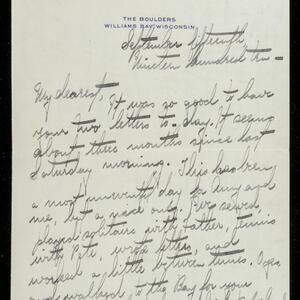 THE BOULDERS
WILLIAMS BAY, WISCONSIN
September fifteenth
Nineteen hundred ten—
My dearest: It was so good to have
your two letters to-day. It seems
about three months since last
Saturday morning. This has been
a most uneventful day for and
me, but a nice one. I've sewed,
played solitaire with Father, tennis
with Pete, wrote letters, and
worked a little between times.
walked to the Bay for your